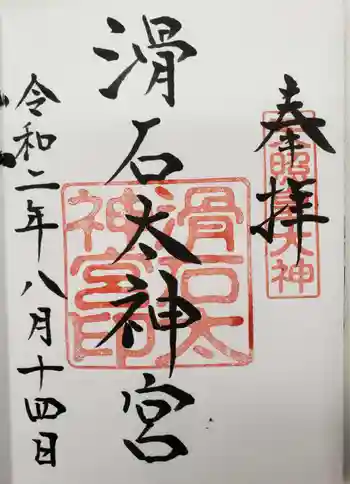 奉拝
滑石太神宮
滑石太
神宮印
令和二年八月十四日